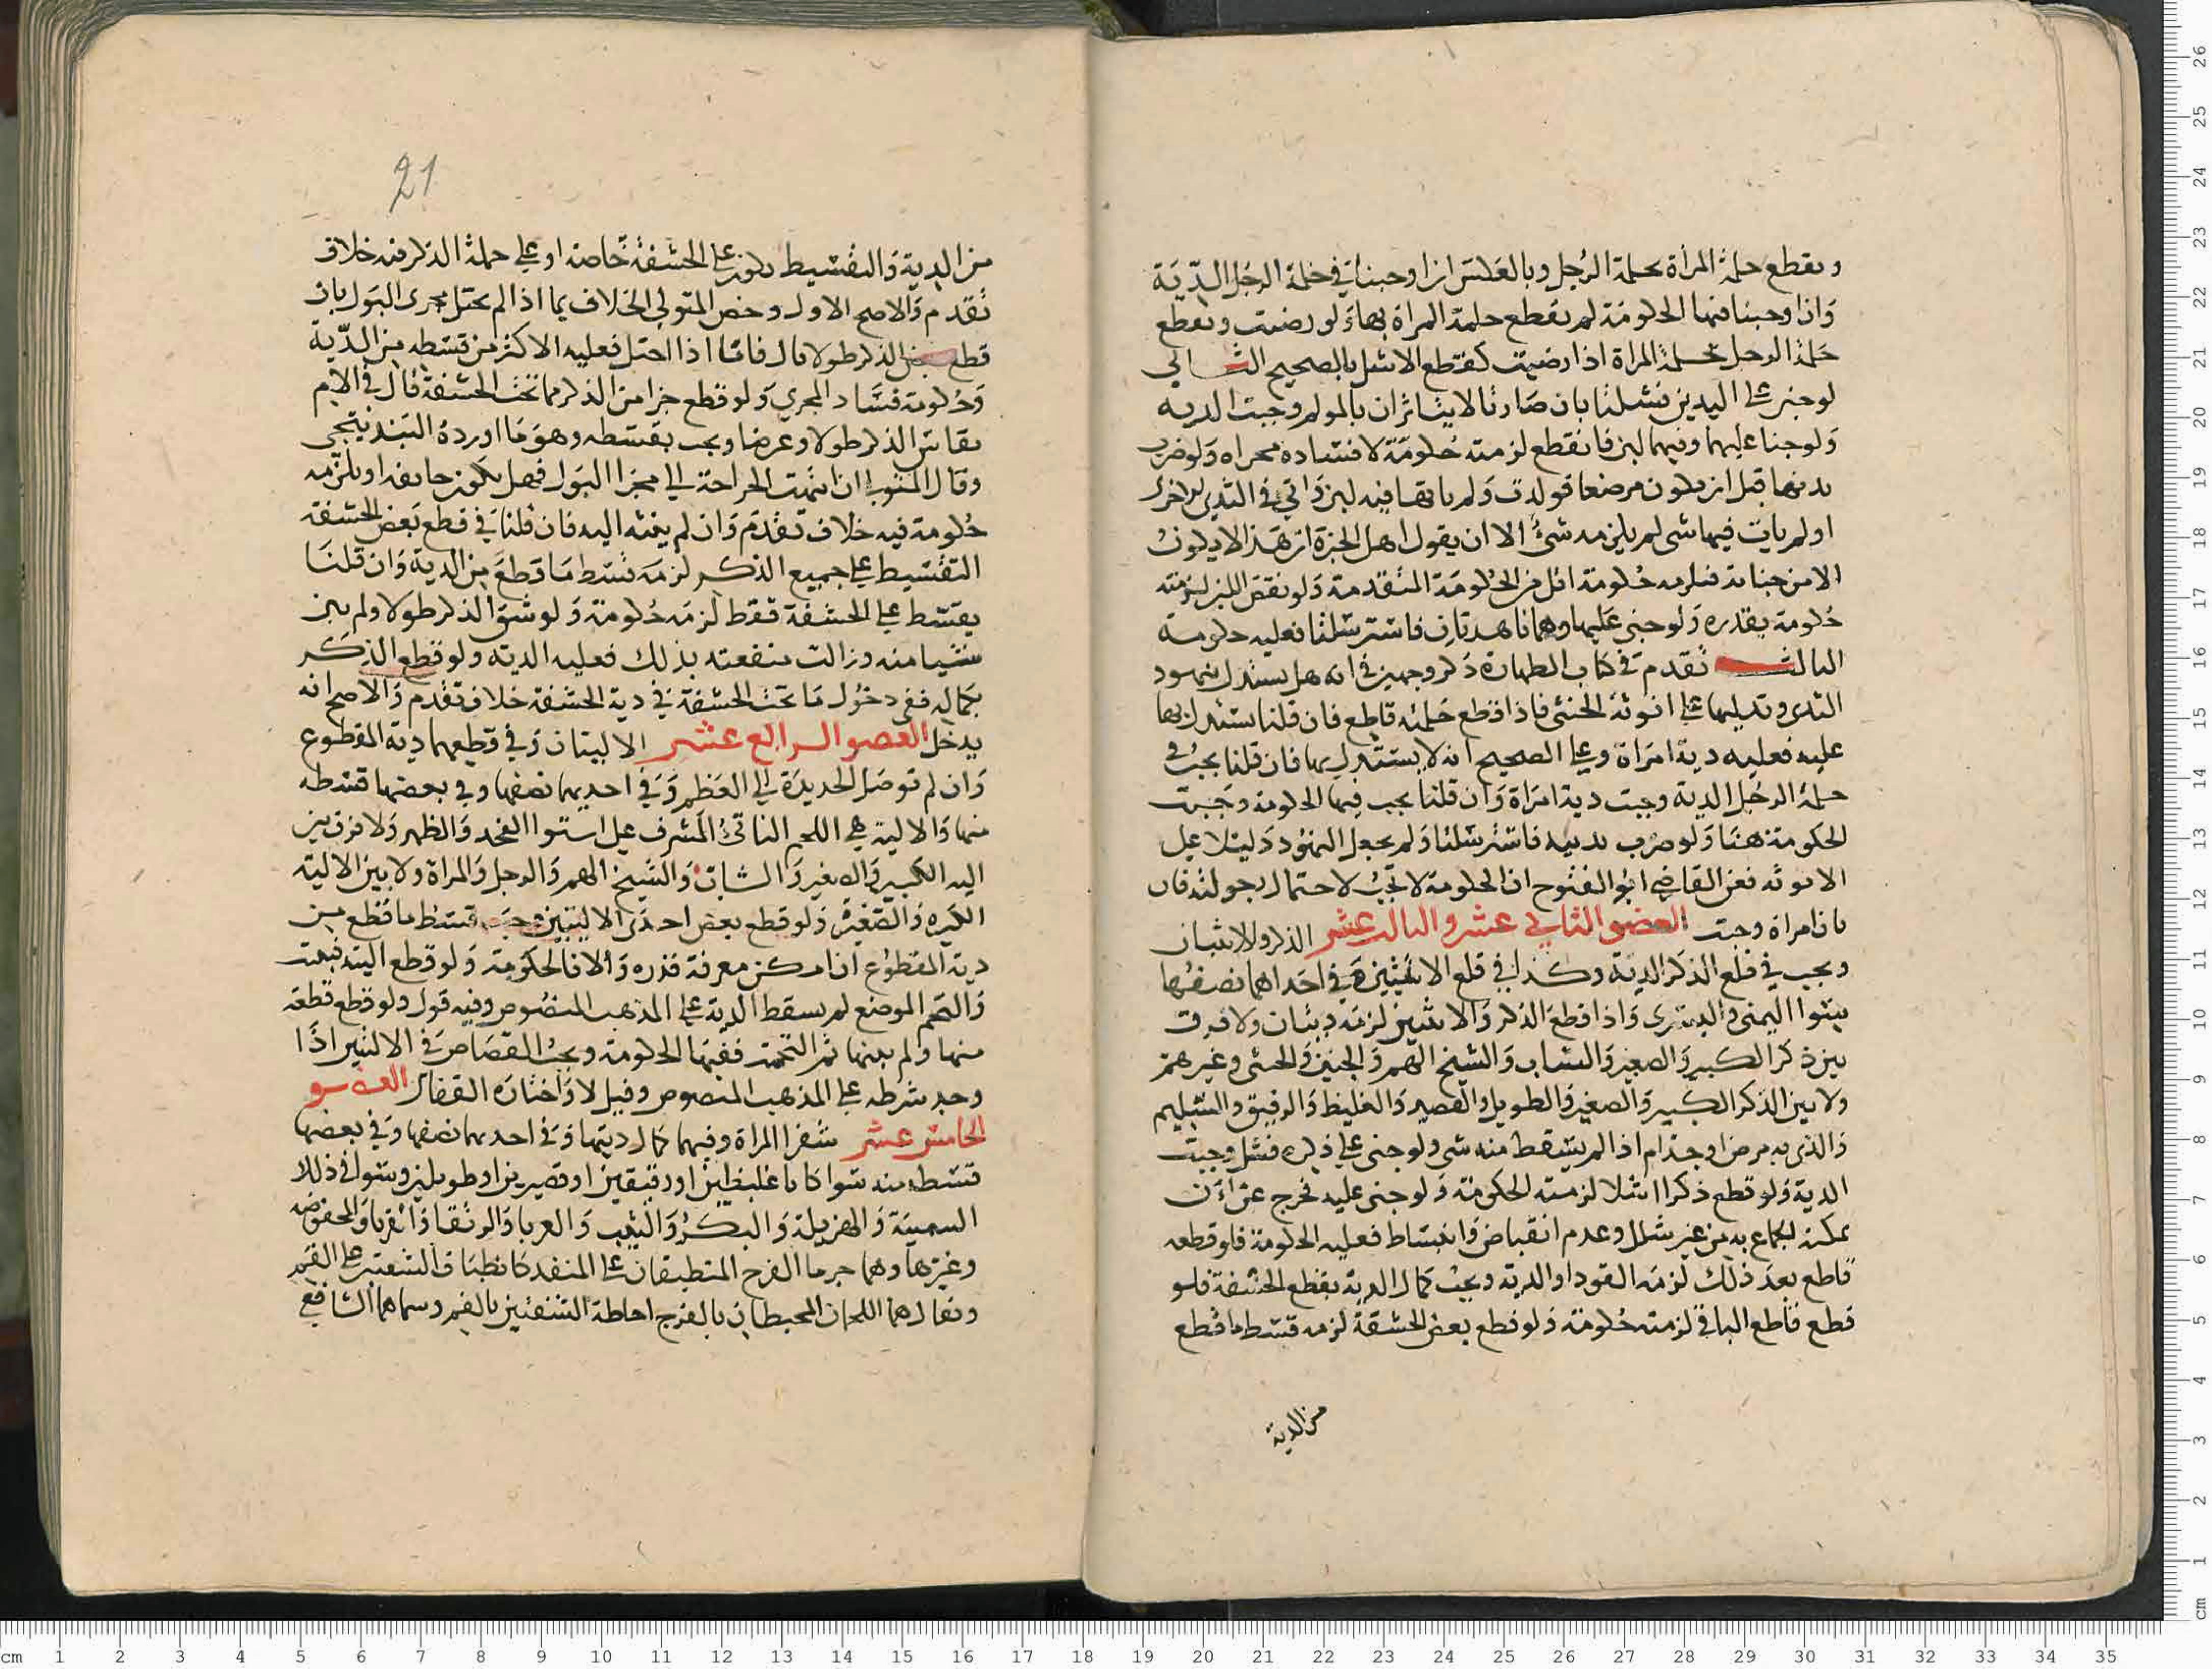 وتقطع حلمة المراة بحلمة الرجل وبالعكس ان اوجبنا في حلمة الرجل الدية
وَان اوجبنا فيها الحكومة لم تقطع حلمة المراة بها وَلو رضيت وتقطع
حَلمة الرجل بحلمة المراة اذا رضيت كقطع الاشل بالصحيح الثـــاني
لوجنى على اليدين فشلتا بان صَارتا لا يتاثران بالمولم وجبت الديه
وَلوجنا عليهما وفيهما لبن فانقطع لزمته حكومَة لافسَاده مجراه وَلو ضرب
ثدييها قبل ان يكون مرضعا فولدت وَلم يأتها فيه لبن وَاتى في الثدي الاخر
اولم يات فيها شى لم يلزمه شئ الا ان يقول اهل الخبرة ان هَذا لا يكون
الا من جناية فيلزمه حُكومة اقل من الحُكومَة المتقدمة وَلو نقصَ اللبن لزمته
حُكومة بقدره وَلو جنى عَليها وهما ناهدتان فاسترسلتا فعليه حكومة
الثالثـــ تقدم في كتاب الطهارة ذكر وجهين في انه هل يستدل بنهود
الثدي وتدليها على انوثة الخنثى فاذا قطع حَلمته قاطع فان قلنا يستدل بها
عليه فعليه دية امرَاة وعلى الصحيح انه لا يستدل بها فان قلنا يجب في
حلمة الرجُل الدية وجبت دية امرَاة وَان قلنا يجب فيها الحكومة وجَبت
الحكومة هنَا وَلو ضرب ثدييه فاسترسَلتا وَلم يجعل النهوُد دَليلا على
الانوثه فعن القاضي ابو الفتوح ان الحكومة لا تجبُ لاحتمال رجوليته فان
بان امراة وجبت العضو الثاني عشر والثالث عشر الذكر والانثيان
ويجب في قلع الذكر الدية وكذا في قلع الانثيين وَفي احَداهما نصفُها
يستوا اليمنى واليسرى وَاذا قطعَ الذكر وَالانثيين لزمَه ديتان ولا فرق
بين ذكر الكبير وَالصغير وَالشاب وَالشيخ الهم وَالجنين وَالخنثى وغيرهم
ولا بين الذكر الكبير وَالصغير وَالطويل والقصير وَالغليظ وَالرقيق والسَليم
وَالذى به مرض اوجذام اذا لم يسقط منه شى ولوجنى على ذكره فشل وجبَت
الدية وَلو قطع ذكرا اشلا لزمته الحكومة وَلو جنى عليه فخرج عن ان
يمكنه الجماع به من غير شلل وعدم انقباض وَانبسَاط فعليه الحكومة فلو قطعه
قاطع بعدَ ذلك لزمَه القود او الدية ويجبُ كمال الدية بقطع الحشفة فلو
قطع قاطع الباقي لزمته حُكومة وَلو قطع بعض الحشفة لزمه قسَط ما قطع
من الدية
21
من الدية وَالتقسيط يكون على الحشفة خاصة او على جملة الذكر فيه خلاف
تقدم وَالاصح الاول وخص المتولي الخلاف بما اذا لم يختل مجرى البَول بان
قطع الذكر طولا قال فامّا اذا اختل فعليه الاكثر من قسطه من الدّية
وَحُكومة فسَاد المجرى وَلو قطع جزا من الذكر مما تحت الحشفة قال في الام
يقاس الذكر طولا وعرضا ويجب بقسطه وهوَ مَا اورده البندنيجي
وقال ان انتهت الجراحة الى مجرا البَول فهل يكون جايفه او يلزمه
حُكومة فيه خلاف تقدم وَان لم ينته اليه فان قلنا في قطع بَعض الحشفة
التقسيط على جميع الذكر لزمَه قسَط مَا قطعَ من الدية وَان قلنَا
يقسَط على الحشفة فقط لزمَه حُكومة وَلو شق الذكر طولا ولم يبن
شيا منه وزالت منفعته بذلك فعليه الدية ولو قطع الذكر
بكماله ففي دخُول مَا تحت الحشفة في دية الحشفة خلاف تقدم وَالاصح انه
يدخل العضو الرابع عشر الاليتان وَفي قطعهما دية المقطوع
وَان لم توصَل الحديدة الى العَظم وَفي احديهما نصفها وفي بعضها قسطه
منها وَالالية هي اللحم الناتئُ المشرف على استوا الفخد وَالظهر وَلا فرق بين
اليه الكبير وَالصغير وَالشاب وَالشيخ الهم وَالرجل وَالمراة ولا بين الالية
الكبيره وَالصَغيرة وَلو قطع بعض احدَى الاليتين وجب قسط ما قطع من
دية المقطوُع ان امكن معرفة قدره وَالا فالحكومة وَلو قطع اليته فنبتت
وَالتحم الموضع لم يسقط الدية على المذهب المنصُوص وفيه قول ولو قطع قطعة
منها ولم يبنها ثم التحمت ففيها الحكومة ويجبُ القصَاص في الاليتين اذَا
وجد شرطه على المذهب المنصوص وقيل لا وَاختارَه القفال العضو
الخامس عشر شفرا المراة وفيهما كمال ديتها وَفي احديهما نصفها وَفي بعضها
قسَطه منه سَوا كانا غليظين اورقيقين اوقصيرين او طويلين وسَوا في ذلك
السمينَة وَالهزيلة وَالبكر وَالثيب وَ وَالرتقا وَالقرنا وَالمخفوضه
وغيرها وهما حرما الفرج المنطبقان على المنفذ كانطبَاق الشفتين على الفم
ويقال هما اللحمان المحيطان بالفرج احاطة الشفتين بالفم وسماهما الشافعي